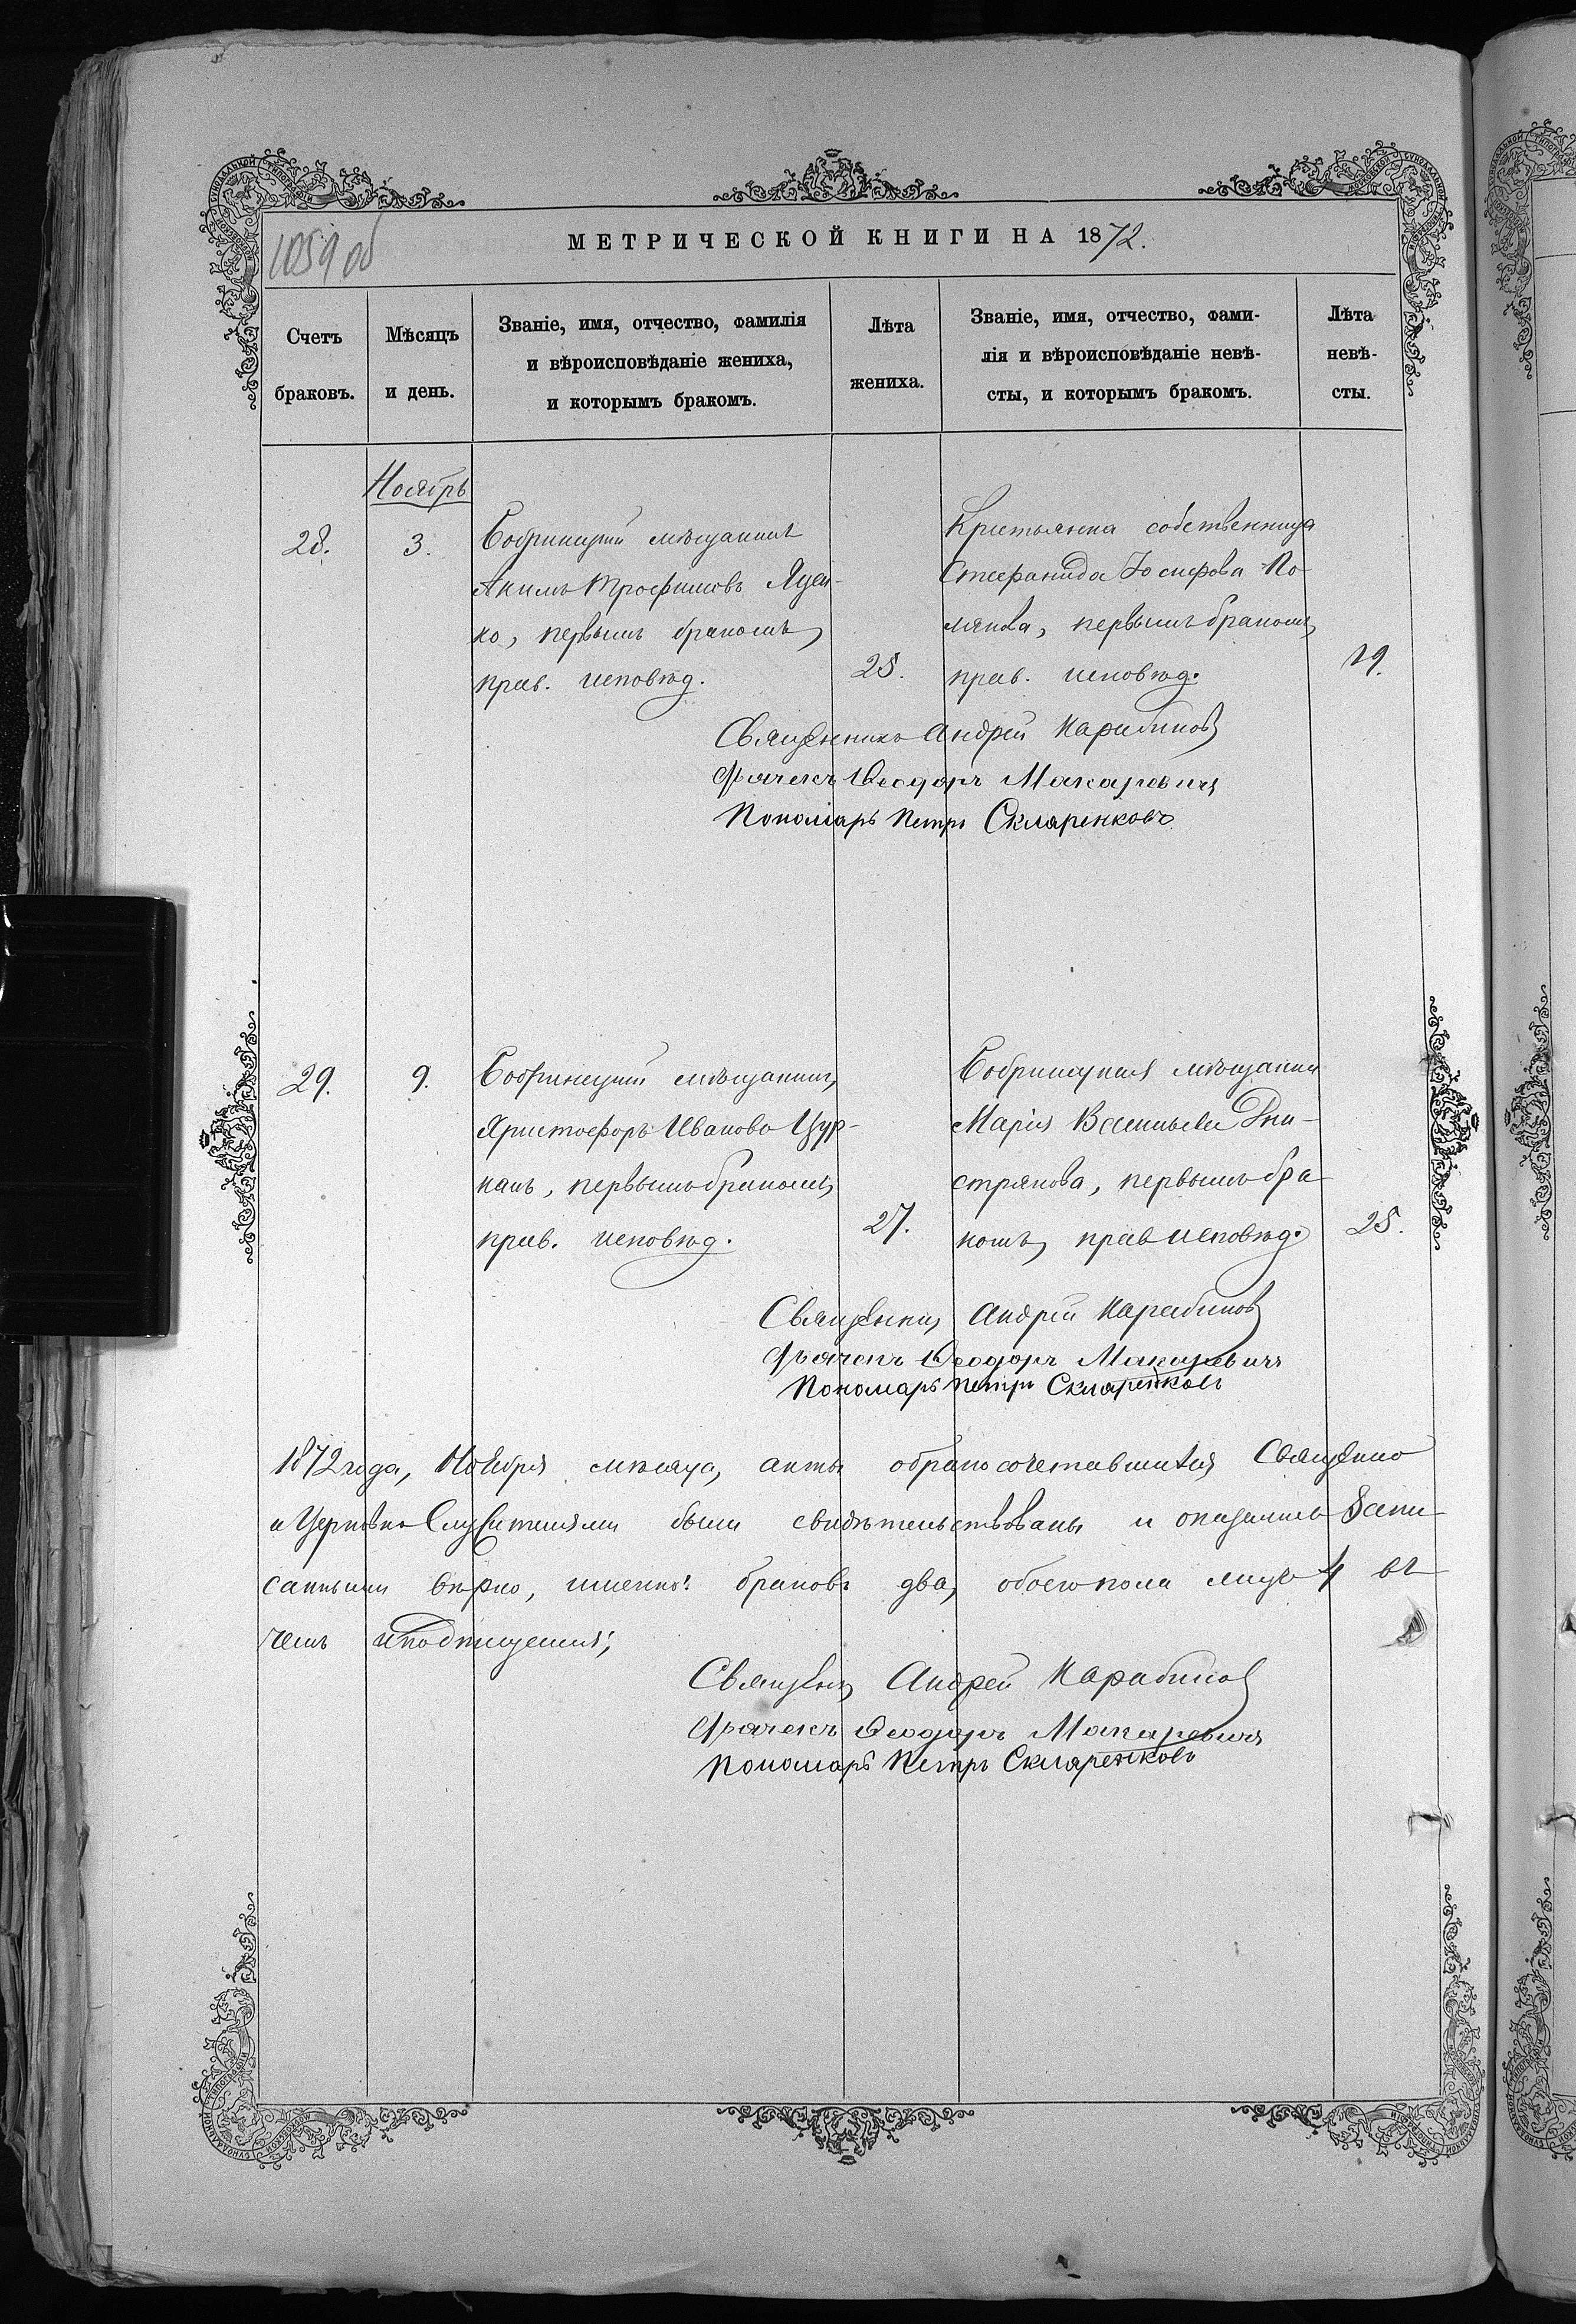 1059 об
МЕТРИЧЕСКОЙ КНИГИ НА 1872.
Счетъ браковъ.
Мѣсяцъ и день.
Званіе, имя, отчество, фамилія
и вѣроисповѣданіе жениха,
и которымъ бракомъ.
Лѣта жениха.
Званіе, имя, отчество, фами-
лія и вѣроисповѣданіе невѣ-
сты, и которымъ бракомъ.
Лѣта невѣ-
сты.
Ноябрь
28.
3.
Бобринецкій мѣщанинъ
Акимъ Трофимовъ Яцен-
ко, первымъ бракомъ,
прав. исповѣд.
25.
Крестьянка собственница
Стефанида Іосифова По-
лякова, первымъ бракомъ,
прав. исповѣд.
19.
Священникъ Андрей Карабиновъ
Дьячекъ Ѳеодоръ Макаревичъ
Пономарь Петръ Скляренковъ
29.
9.
Бобринецкій мѣщанинъ,
Христофоръ Ивановъ Цур-
канъ, первымъ бракомъ,
прав. исповѣд.
27.
Бобринецкая мѣщанка
Марія Васильева Дни-
стрянова, первымъ бра-
комъ, прав исповѣд.
25.
Священникъ Андрей Карабиновъ
Дьячекъ Ѳеодоръ Макаревичъ
Пономарь Петръ Скляренковъ
1872 года, Ноября мѣсяца, акты о бракосочетавшихся Священно
и Церковно Служителями были свидѣтельствованы и оказались запи-
санными вѣрно, именно: браковъ два, обоего пола лицъ 4 въ
чемъ и подпишемся;
Священникъ Андрей Карабиновъ
Дьячекъ Ѳеодоръ Макаревичъ
Пономарь Петръ Скляренковъ